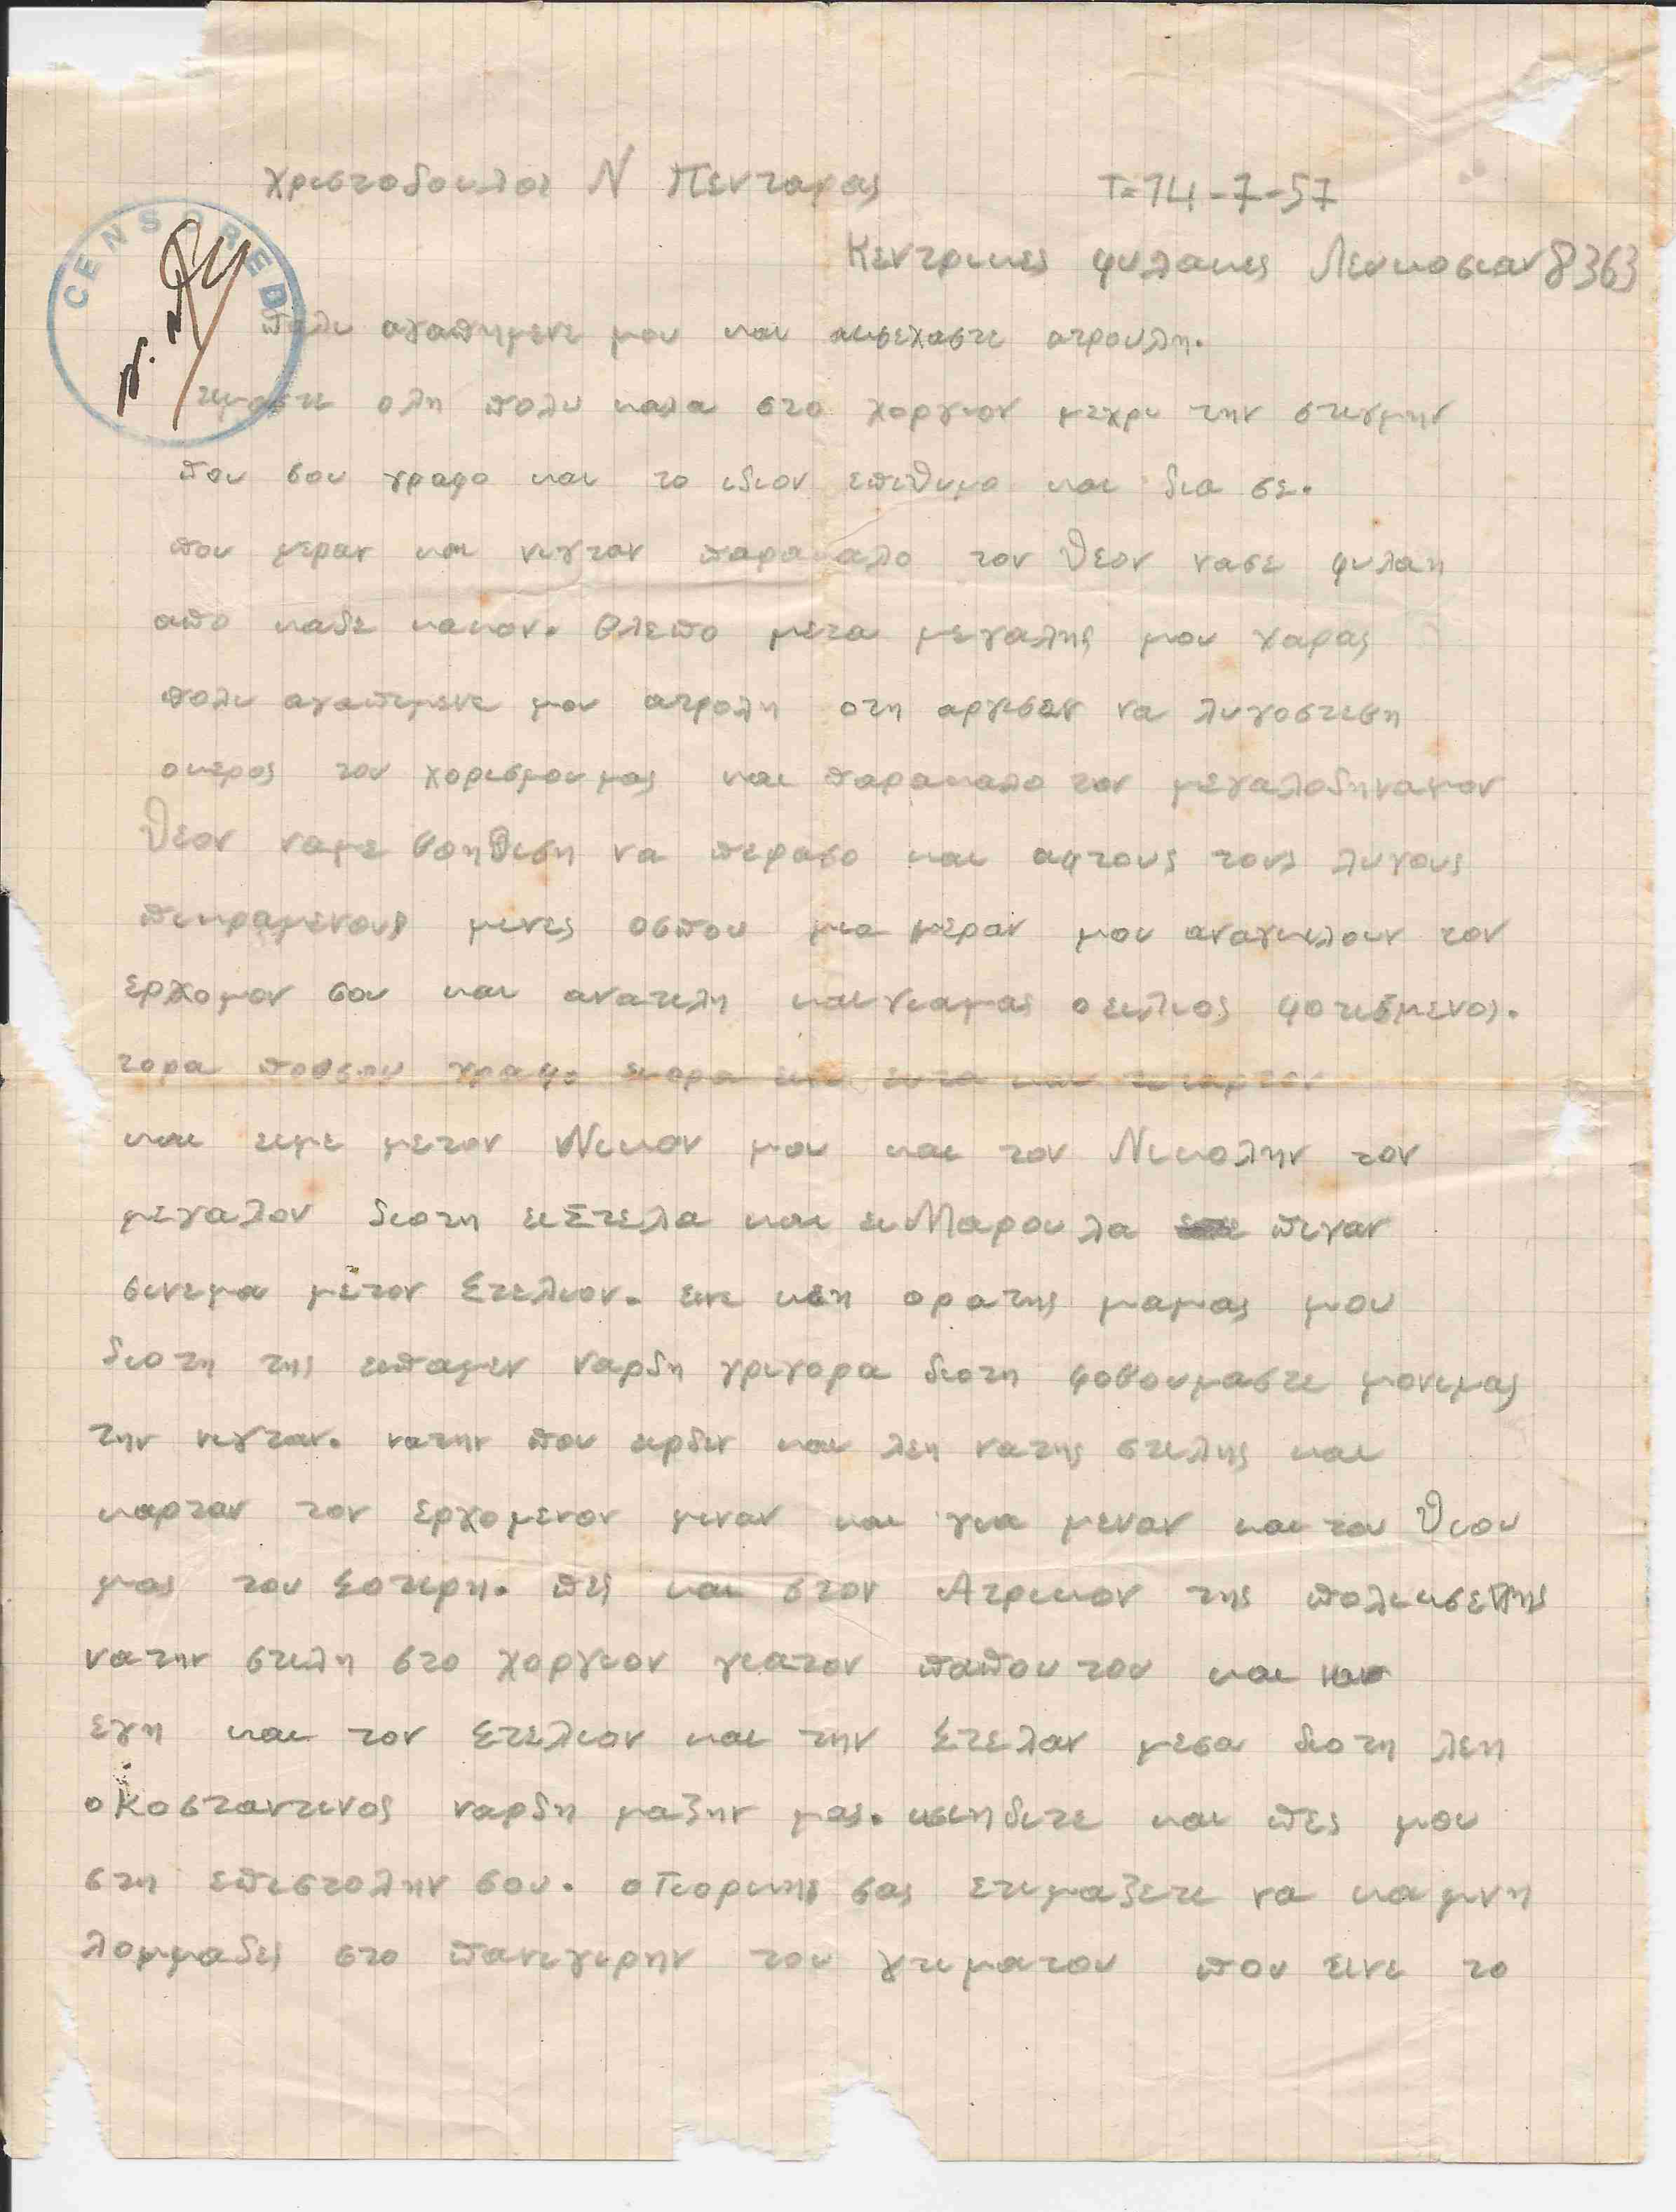 Χριστοδουλος Ν Πενταρας Τ=14-7-57
Κεντρικες φυλακες Λευκοσιαν 8363
CENSORED
πολυ αγαπημενε μου και ακσεχαστε ατρουλη.
ειμαστε ολη πολυ καλα στο χοργιον μεχρι την στιγμην
που σου γραφο και το ιδιον επιθυμο και δια σε.
που μεραν και νυχταν παρακαλο τον θεον νασε φυλαη
απο καδε κακον. βλεπο μετα μεγαλης μου χαρας
πολυ αγαπιμενε μου ατρολη οτη αρχισεν να λυγοστεβη
οκερος του χορισμου μας και παρακαλο τον μεγαλοδηναμον
θεον ναμε βοηθιση να περασο και αφτους τους λυγους
πικραμενους μινες οσπου μια μεραν μου αναγγιλουν τον
ερχομον σου και ανατιλη και γιαμας οειλιος φοτισμενος.
τορα ποθσου γραφο ειορα ενε
και ειμε μετον Νικον μου και τον Νικολην τον
μεγαλον διοτη ειΣτελα και ειΜαρουλα πιγαν
σινεμα μετον Στελιον. ενε κεη ορατης μαμας μου
διοτη της ειπαμεν ναρδη γριγορα διοτη φοβουμαστε μονιμας
την νιχταν. νατην που ειρδεν και λεη νατης στιλης και
καρταν τον ερχομενον μιναν και για μεναν και του θιου
μας του Σοτιρη. πες και στον Ατρικον της πολικσενης
νατην στιλη στο χοργιον γιατον παπου του και
εχη και τον Στελιον και την Στελαν μεσα διοτη λεη
οΚοσταντινος ναρδη μαζην μας. κσιηδετε και πες μου
στη επιστολην σου. οΓιορκης σας ετιμαζετε να καμνη
λομμαδες στο πανεγιρην του χτιματου που εινε το